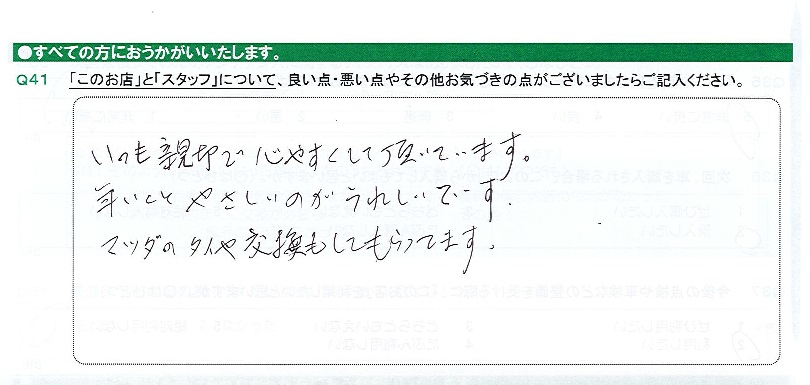 ●すべての方におうかがいいたします。
Q41 「このお店」と「スタッフ」について、良い点・悪い点やその他お気づきの点がございましたらご記入ください。
いつも親切で心やすくして頂いています。
やさしいのがうれしいでーす.
マツダのタイヤ交換もしてもらってます。